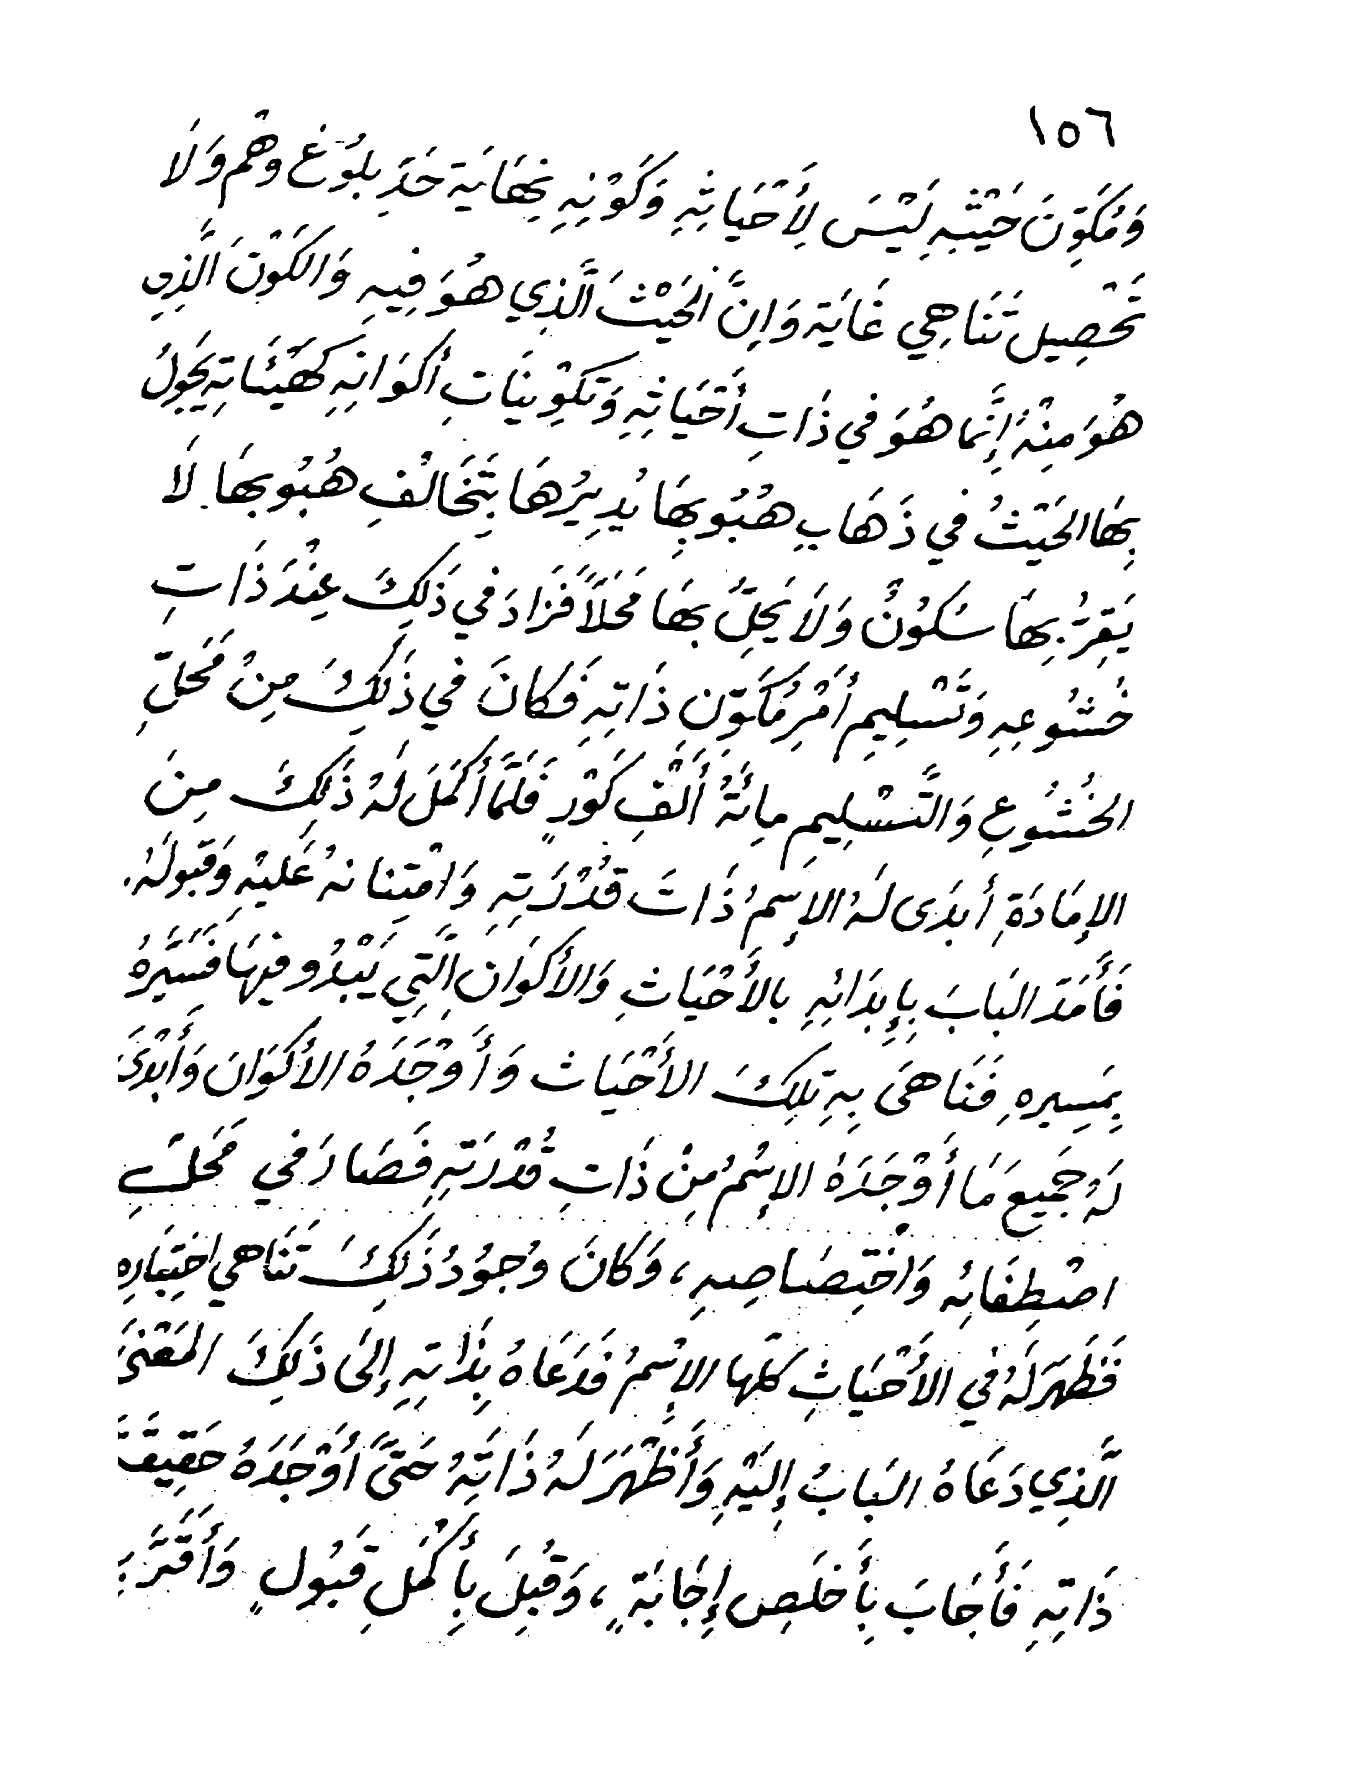 ١٥٦
وَمُكَوِّنَ حَيْثِهِ لَيْسَ لِأَحْيَاثِهِ وَكَوْنِهِ نِهَايَة حَدّ بلُوْغ وهْم وَلَا
تَحْصِيل تَنَاهِي غَايَة وَإِنَّ الحَيْثَ الَّذِي هُوَ فِيهِ وَالكَوْنَ الَّذِي
هُوَ مِنْهُ إِنَّمَا هُوَ في ذَاتِ أَحْيَاثِهِ وَتَكوِينَاتِ أَكوَانِهِ كَهَيْئَاتِهِ يَجُولُ
بِهَا الحَيْثُ في ذَهَابِ هُبُوبِهَا يُدِيرُهَا بِتَخَالُفِ هُبُوبِهَا لَا
يَقِرُّ بِهَا سُكُونٌ وَلَا يَحِلُّ بِهَا مَحَلَّاً فَزَادَ في ذَلِكَ عِنْدَ ذَاتِ
خُشُوعِهِ وَتَسْلِيمِ أَمْرِ مُكَوِّنِ ذَاتِهِ فَكانَ في ذَلِكَ مِنْ مَحَلِّ
الخُشُوعِ وَالتَّسْلِيمِ مِائَةُ أَلْفِ كَوْرٍ فَلَمَّا أَكمَلَ لَهُ ذَلِكَ مِنَ
الإِمَادَةِ أَبدَى لَهُ الإِسمُ ذَاتَ قُدْرَتِهِ وَامْتِنانهُ عَليْهِ وَقَبُولَهُ.
فَأَمَدَّ البَابَ بِإِبدَائِهِ بالأَحْيَاثِ وَالأَكوَانِ الَّتِي يَبْدُو فيهَا فَسَيَّرَهُ
بِمَسِيرِهِ فَنَاهَى بِهِ تِلكَ الأَحْيَاث وَأَوْجَدَهُ الأَكوَانَ وَأَبْدَى
لَهُ جَمِيعَ مَا أَوْجَدَهُ الإِسْمُ مِنْ ذَاتِ قُدْرَتِهِ فَصَارَ في مَحَلِّ
اصْطِفَائِه وَاخْتِصَاصِهِ، وَكَانَ وُجُودُ ذَلِكَ تَنَاهي اختِبَارِهِ
فَظَهَرَ لَهُ في الأَحْيَاثِ كلّها الإِسْمُ فَدَعَاهُ بِذَاتِهِ إِلَى ذَلِكَ المَعْنَى
الَّذِي دَعَاهُ البَابُ إِلَيْهِ وَأَظْهَرَ لَهُ ذَاتَهُ حَتَّى أَوْجَدَهُ حَقِيقَةَ
ذَاتِهِ فَأَجَابَ بِأَخلَصِ إِجَابَةٍ، وَقَبِلَ بِأَكْمَلِ قَبُولٍ وَأَقَرَّ